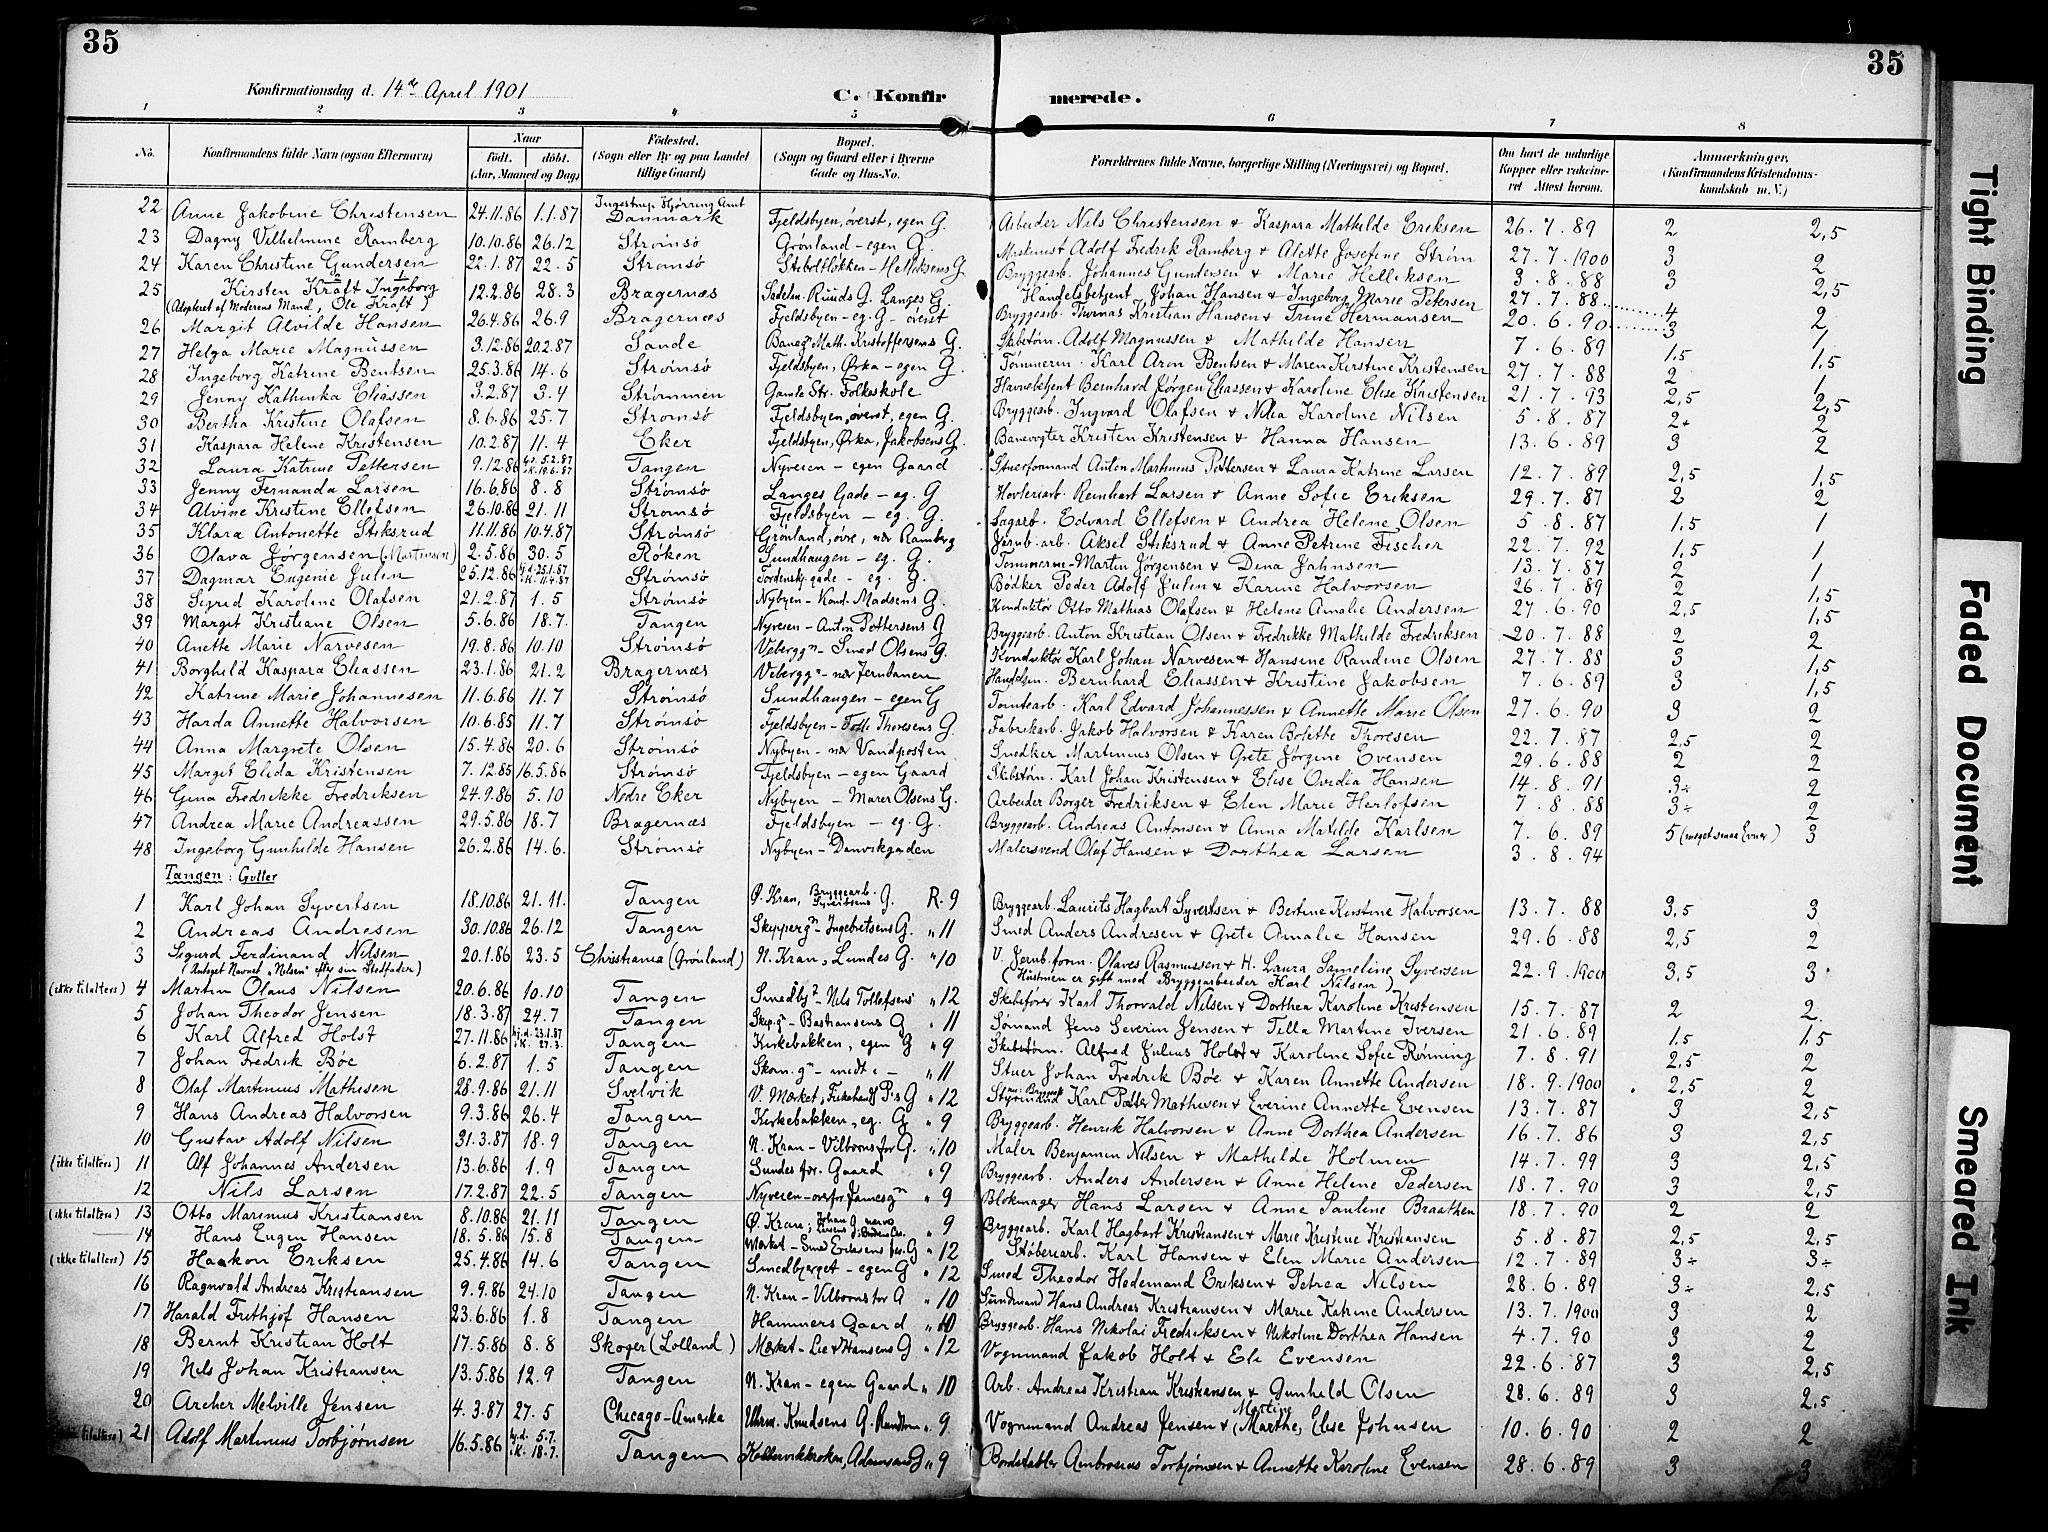 35
35
Konfirmationsdag d. 14de April 1901
C. Konfirmerede.
1 2 3 4 5 6 7 8
No. Konfirmandens fulde Navn (ogsaa Efternavn) Naar födt. döbt. (Aar, Maaned og Dag) Födested. (Sogn eller By og paa Landet tillige Gaard) Bopæl. (Sogn og Gaard eller i Byerne Gade og Hus-No. Forældrenes fulde Navne, borgerlige Stilling (Næringsvei) og Bopæl. Om havt de naturlige Kopper eller vakcineret Attest herom. Anmærkninger. (Konfirmandens Kristendomskundskab m. V.)
22 Anne Jakobine Christensen 24.11.86 1.1.87 Ingestrup Hjørring Amt Danmark Fjeldsbyen, överst, egen G. Arbeider Nils Christensen & Kaspara Mathilde Eriksen 26.7.89 2 2,5
23 Dagny Vilhelmine Ramberg 10.10.86 26.12 Strømsö Grønland - egen G. Maskinist Adolf Fredrik Ramberg & Alette Josefine Strøm 27.7.1900 3 2
24 Karen Christine Gundersen 22.1.87 22.5 Strømsö Stiboltløkken - Helliksens G Bryggearb. Johannes Gundersen & Marie Helliksen 3.8.88 3 2,5
25 Kirsten Kraft Ingeborg 12.2.86 28.3 Bragernæs Sadelm. Ruuds G. Langes G. Handelsbetjent Johan Hansen & Ingeborg Marie Petersen 27.7.88 4 2
(Adopteret af Moderens Mand, Ole Kraft)
26 Margit Alvilde Hansen 26.4.86 26.9 Bragernæs Fjeldsbyen - eg. G - överst Bryggearb. Thomas Kristian Hansen & Trine Hermansen 20.6.90 3 1
27 Helga Marie Magnussen 3.12.86 20.2.87 Sande Baneg. Math. Kristoffersens G. Skibstøm. Adolf Magnussen & Mathilde Hansen 7.6.89 1,5 1,5
28 Ingeborg Katrine Bentsen 25.3.86 14.6 Strømsö Fjeldsbyen, Ørka - egen G. Tømmerm. Karl Aron Bentsen & Maren Kirstine Kristensen 27.7.88 2 1
29 Jenny Kathinka Eliassen 3.2.87 3.4 Strömmen Gamle Str. Folkeskole Havnebetjent Bernhard Jørgen Eliassen & Karoline Elise Kristensen 21.7.93 2,5 2,5
30 Bertha Kristine Olafsen 8.6.86 25.7 Strømsö Fjeldsbyen, överst, egen G. Bryggearb. Ingvard Olafsen & Nilia Karoline Nilsen 5.8.87 2+ 2
31 Kaspara Helene Kristensen 10.2.87 11.4 Eker Fjeldsbyen, Ørka, Jakobsens G. Banevogter Kristen Kristensen & Hanna Hansen 13.6.89 3 2
32 Laura Katrine Pettersen 9.12.86 hjd. 5.2.87 i K. 19.6.87 Tangen Nyveien - egen Gaard Stuerformand Anton Martinus Pettersen & Laura Katrine Larsen 12.7.89 2,5 1,5
33 Jenny Fernanda Larsen 16.6.86 8.8 Strømsö Langes Gade - eg. G Høvleriarb. Reinhart Larsen & Anne Sofie Eriksen 29.7.87 2 2
34 Alvine Kristine Ellefsen 26.10.86 21.11 Strømsö Fjeldsbyen - eg. G. Sagarb. Edvard Ellefsen & Andrea Helene Olsen 5.8.87 1,5 1
35 Klara Antonette Stiksrud 11.11.86 10.4.87 Strømsö Grønland, övre, nær Ramberg Jernb. arb. Aksel Stiksrud & Anne Petrine Fischer 22.7.92 1,5 1
36 Olava Jørgensen (Martinsen) 2.5.86 30.5 Røken Sundhaugen - eg. G. Tømmerm. Martin Jørgensen & Dina Jahnsen 13.7.87 2 1
37 Dagmar Eugenie Julin 25.12.86 hj.d. 25.1.87 i K. 11.4.87 Strømsö Tordenskj. gade - eg. G. Bödker Peder Adolf Julin & Karine Halvorsen 26.7.89 2 1,5
38 Sigrid Karoline Olafsen 21.2.87 1.5 Strømsö Nybyen - Kond. Madsens G. Konduktör Otto Mathias Olafsen & Helene Amalie Andersen 27.6.90 2,5 1,5
39 Margit Kristiane Olsen 5.6.86 18.7. Tangen Nyveien - Anton Pettersens G Bryggearb. Anton Kristian Olsen & Fredrikke Mathilde Fredriksen 20.7.88 2 2
40 Anette Marie Narvesen 19.8.86 10.10 Strømsö Vebergg. - Smed Olsens G. Konduktör Karl Johan Narvesen & Hansine Randine Olsen 27.7.88 3 1,5
41 Borghild Kaspara Eliassen 23.1.86 21.2 Bragernæs Vebergg. - nær Jernbanen Handelsm. Bernhard Eliassen & Kristine Jakobsen 7.6.89 3 1,5
42 Katrine Marie Johannesen 11.6.86 11.7 Strømsö Sundhaugen - egen G Tomtearb. Karl Edvard Johannessen & Annette Marie Olsen 27.6.90 3 2
43 Harda Annette Halvorsen 10.6.85 11.7 Strømsö Fjeldsbyen - Thoresens G. Fabrikarb. Jakob Halvorsen & Karen Bolette Thoresen 22.7.87 2,5 2
44 Anna Margrete Olsen 15.4.86 20.6 Strømsö Nybyen - nær Vandposten Snedker Martinius Olsen & Grete Jørgine Evensen 29.6.88 2 2
45 Margit Elida Kristensen 7.12.85 16.5.86 Strømsö Fjeldsbyen - egen Gaard Skibstøm. Karl Johan Kristensen & Elise Ovidia Hansen 14.8.91 3÷ 2
46 Gina Fredrikke Fredriksen 24.9.86 5.10 Nedre Eker Nybyen - Murer Olsens G. Arbeider Borger Fredriksen & Elen Marie Herlofsen 7.8.88 3÷ 2
47 Andrea Marie Andreassen 29.5.86 18.7 Bragernæs Fjeldsbyen - eg. G. Bryggearb. Andreas Antonsen & Anna Matilde Karlsen 7.6.89 5 (meget smaa Evner) 3
48 Ingeborg Gunhilde Hansen 26.2.86 14.6. Strømsö Nybyen - Danvikgaden Malersvend Olaf Hansen & Dorthea Larsen 3.8.94
Tangen: Gutter
1 Karl Johan Syvertsen 18.10.86 21.11. Tangen Ø. Kran, Bryggearb. Syvertsens G. R. 9 Bryggearb. Laurits Hagbart Syvertsen & Bertine Kirstine Halvorsen 13.7.88 3,5 3
2 Andreas Andresen 30.10.86 26.12 Tangen Skipperg. - Ingebretsens G. " 11 Smed Anders Andresen & Grete Amalie Hansen 29.6.88 2,5 2
3 Sigurd Ferdinand Nilsen 20.1.86 23.5 Christiania (Grønland) N. Kran, Lundes G. " 10 V. Jernb. form. Olaves Rasmussen & H. Laura Sameline Syversen 22.9.1900 3,5 3
(Antaget Navnet "Nilsen" efter sin Stedfader) (Hustruen er gift med Bryggearbeider Karl Nilsen)
(ikke tilalters) 4 Martin Olaus Nilsen 20.6.86 10.10 Tangen Smedbj. - Nils Tollefsens " 12 Skibsfører Karl Thorvald Nilsen & Dorthea Karoline Kristensen 15.7.87 2 2
5 Johan Theodor Jensen 18.3.87 24.7 Tangen Skip.g. - Bastiansens G " 11 Sømand Jens Severin Jensen & Tilla Martine Iversen 21.6.89 1,5 1,5
6 Karl Alfred Holst 27.11.86 hj.d. 23.1.87 i K. 27.3. Tangen Kirkebakken, egen G " 9 Skibstøm. Alfred Julius Holst & Karoline Sofie Rønning 7.8.91 2,5 2
7 Johan Fredrik Böe 6.2.87 1.5 Tangen Skom.g. - midt i - " 11 Stuer Johan Fredrik Böe & Karen Annette Andersen 18.9.1900 2,5 2
8 Olaf Martinius Mathisen 28.9.86 21.11 Svelvik V. Mærket, G " 12 Styrmand Karl Petter Mathisen & Everine Annette Evensen 13.7.87 3 2,5
9 Hans Andreas Halvorsen 9.3.86 26.4 Tangen Kirkebakken, eg. G " 9 Bryggearb. Henrik Halvorsen & Anne Dorthea Andersen 16.7.86 3 2,5
10 Gustav Adolf Nilsen 31.3.87 18.9 Tangen N. Kran - Vilbornsfor G. " 10 Maler Benjamin Nilsen & Mathilde Holmen 14.7.99 3 2,5
(ikke tilalters) 11 Alf Johannes Andersen 13.6.86 1.9 Tangen Sundes for. Gaard " 9 Bryggearb. Anders Andersen & Anne Helene Pedersen 18.7.90 3 2,5
12 Nils Larsen 17.2.87 22.5 Tangen Nyveien - " 9 Blokmager Hans Larsen & Anne Pauline Braathen 18.7.90 2 2
(ikke tilalters) 13 Otto Marinius Kristiansen 8.10.86 21.11 Tangen Ø. Kran; " 9 Bryggearb. Karl Hagbart Kristiansen & Marie Kristine Kristiansen 5.8.87 2,5 2,5
14 Hans Eugen Hansen 18.5.86 15.8 Tangen Mærket - Smed Eriksens for. G " 12 Støberiarb. Karl Hansen & Elen Marie Andersen 12.7.89 3÷ 3÷
(ikke tilalters) 15 Haakon Eriksen 25.4.86 14.6 Tangen Smedbjerget - egen G " 12 Smed Theodor Hedemand Eriksen & Petrea Nilsen 28.6.89 3÷ 2,5
16 Ragnvald Andreas Kristiansen 9.9.86 24.10 Tangen N. Kran - Vilbornsfor G " 10 Sundmand Hans Andreas Kristiansen & Marie Katrine Andersen 13.7.1900 3 2
17 Harald Frithjof Hansen 23.6.86 1.8 Tangen Hammers Gaard " 10 Bryggearb. Hans Nikolai Fredriksen & Nikoline Dorthea Hansen 4.7.90 3 2
18 Bernt Kristian Holt 17.5.86 8.8 Skoger (Lolland) Mærket - Lie & Hansens G " 12 Vognmand Jakob Holt & Eli Evensen 22.6.87 3 2,5
19 Nils Johan Kristiansen 13.5.86 12.9 Tangen N. Kran - egen Gaard " 10 Arb. Andreas Kristian Kristiansen & Gunhild Olsen 28.6.89 3 2,5
20 Archer Melville Jensen 4.3.87 27.5 Chicago - Amerika Uhrm. Knudsens G. " 9 Vognmand Andreas Jensen & (Marthe) Martine Elise Johnsen 10.6.90 2 2
tilalters) 21 Adolf Martinius Torbjørnsen 16.5.86 hj.d. 5.7. i K. 18.7. Tangen Hellervikkroken, Adamsens G " 9 Bordstabler Ambrosius Torbjørnsen & Annette Karoline Evensen 28.6.89 3 3
Tight Binding
Faded Document
Smeared Ink